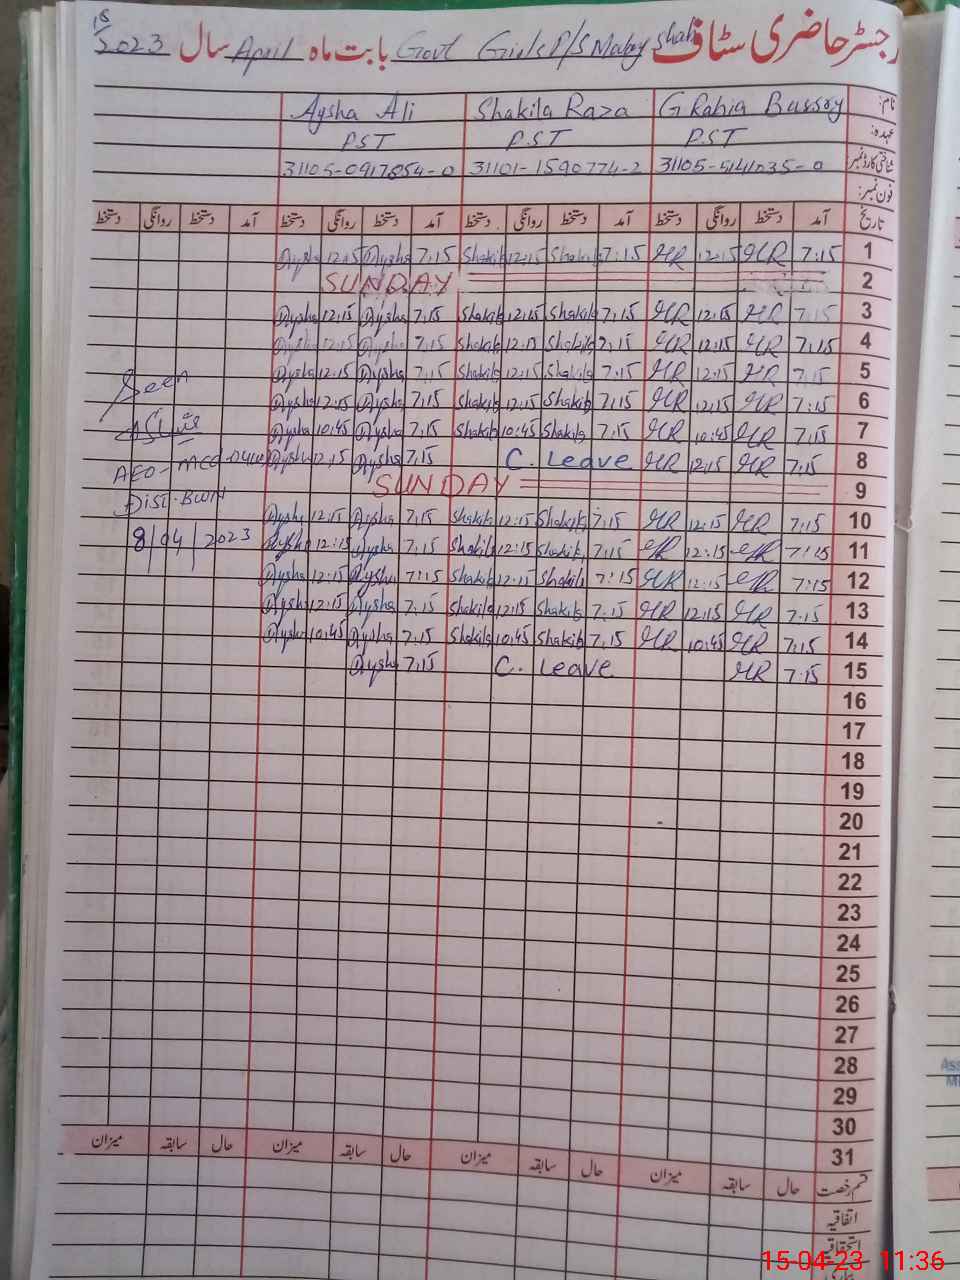 رجسٹر حاضری سٹاف Govt Girls P/S Maloy Shah بابت ماہ April سال 2023
نام: G Rabia Bussry Shakila Raza Aysha Ali
عہدہ: P.ST P.ST P.ST
شناختی کارڈ نمبر 31105-5141035-0 31101-1590774-2 31105-0917854-0
فون نمبر:
تاریخ آمد دستخط روانگی دستخط آمد دستخط روانگی دستخط آمد دستخط روانگی دستخط آمد دستخط روانگی دستخط
1 7:15 GR 12:15 GR 7:15 Shakila 12:15 Shakila 7:15 Aysha 12:15 Aysha
2 SUNDAY
3 7:15 GR 12:15 GR 7:15 Shakila 12:15 Shakila 7:15 Aysha 12:15 Aysha
4 7:15 GR 12:15 GR 7:15 Shakila 12:15 Shakila 7:15 Aysha 12:15 Aysha
5 7:15 GR 12:15 GR 7:15 Shakila 12:15 Shakila 7:15 Aysha 12:15 Aysha
6 7:15 GR 12:15 GR 7:15 Shakila 12:15 Shakila 7:15 Aysha 12:15 Aysha
7 7:15 GR 10:45 GR 7:15 Shakila 10:45 Shakila 7:15 Aysha 10:45 Aysha
8 7:15 GR 12:15 GR C. Leave 7:15 Aysha 12:15 Aysha
9 SUNDAY
10 7:15 GR 12:15 GR 7:15 Shakila 12:15 Shakila 7:15 Aysha 12:15 Aysha
11 7:15 GR 12:15 GR 7:15 Shakila 12:15 Shakila 7:15 Aysha 12:15 Aysha
12 7:15 GR 12:15 GR 7:15 Shakila 12:15 Shakila 7:15 Aysha 12:15 Aysha
13 7:15 GR 12:15 GR 7:15 Shakila 12:15 Shakila 7:15 Aysha 12:15 Aysha
14 7:15 GR 10:45 GR 7:15 Shakila 10:45 Shakila 7:15 Aysha 10:45 Aysha
15 7:15 GR C. Leave 7:15 Aysha
Seen
AEO-
Dist. BWN
8/04/2023
16
17
18
19
20
21
22
23
24
25
26
27
28
29
30
31
قسم رخصت حال سابقہ میزان حال سابقہ میزان حال سابقہ میزان حال سابقہ میزان
اتفاقیہ
استحقاقیہ
15-04-23 11:36